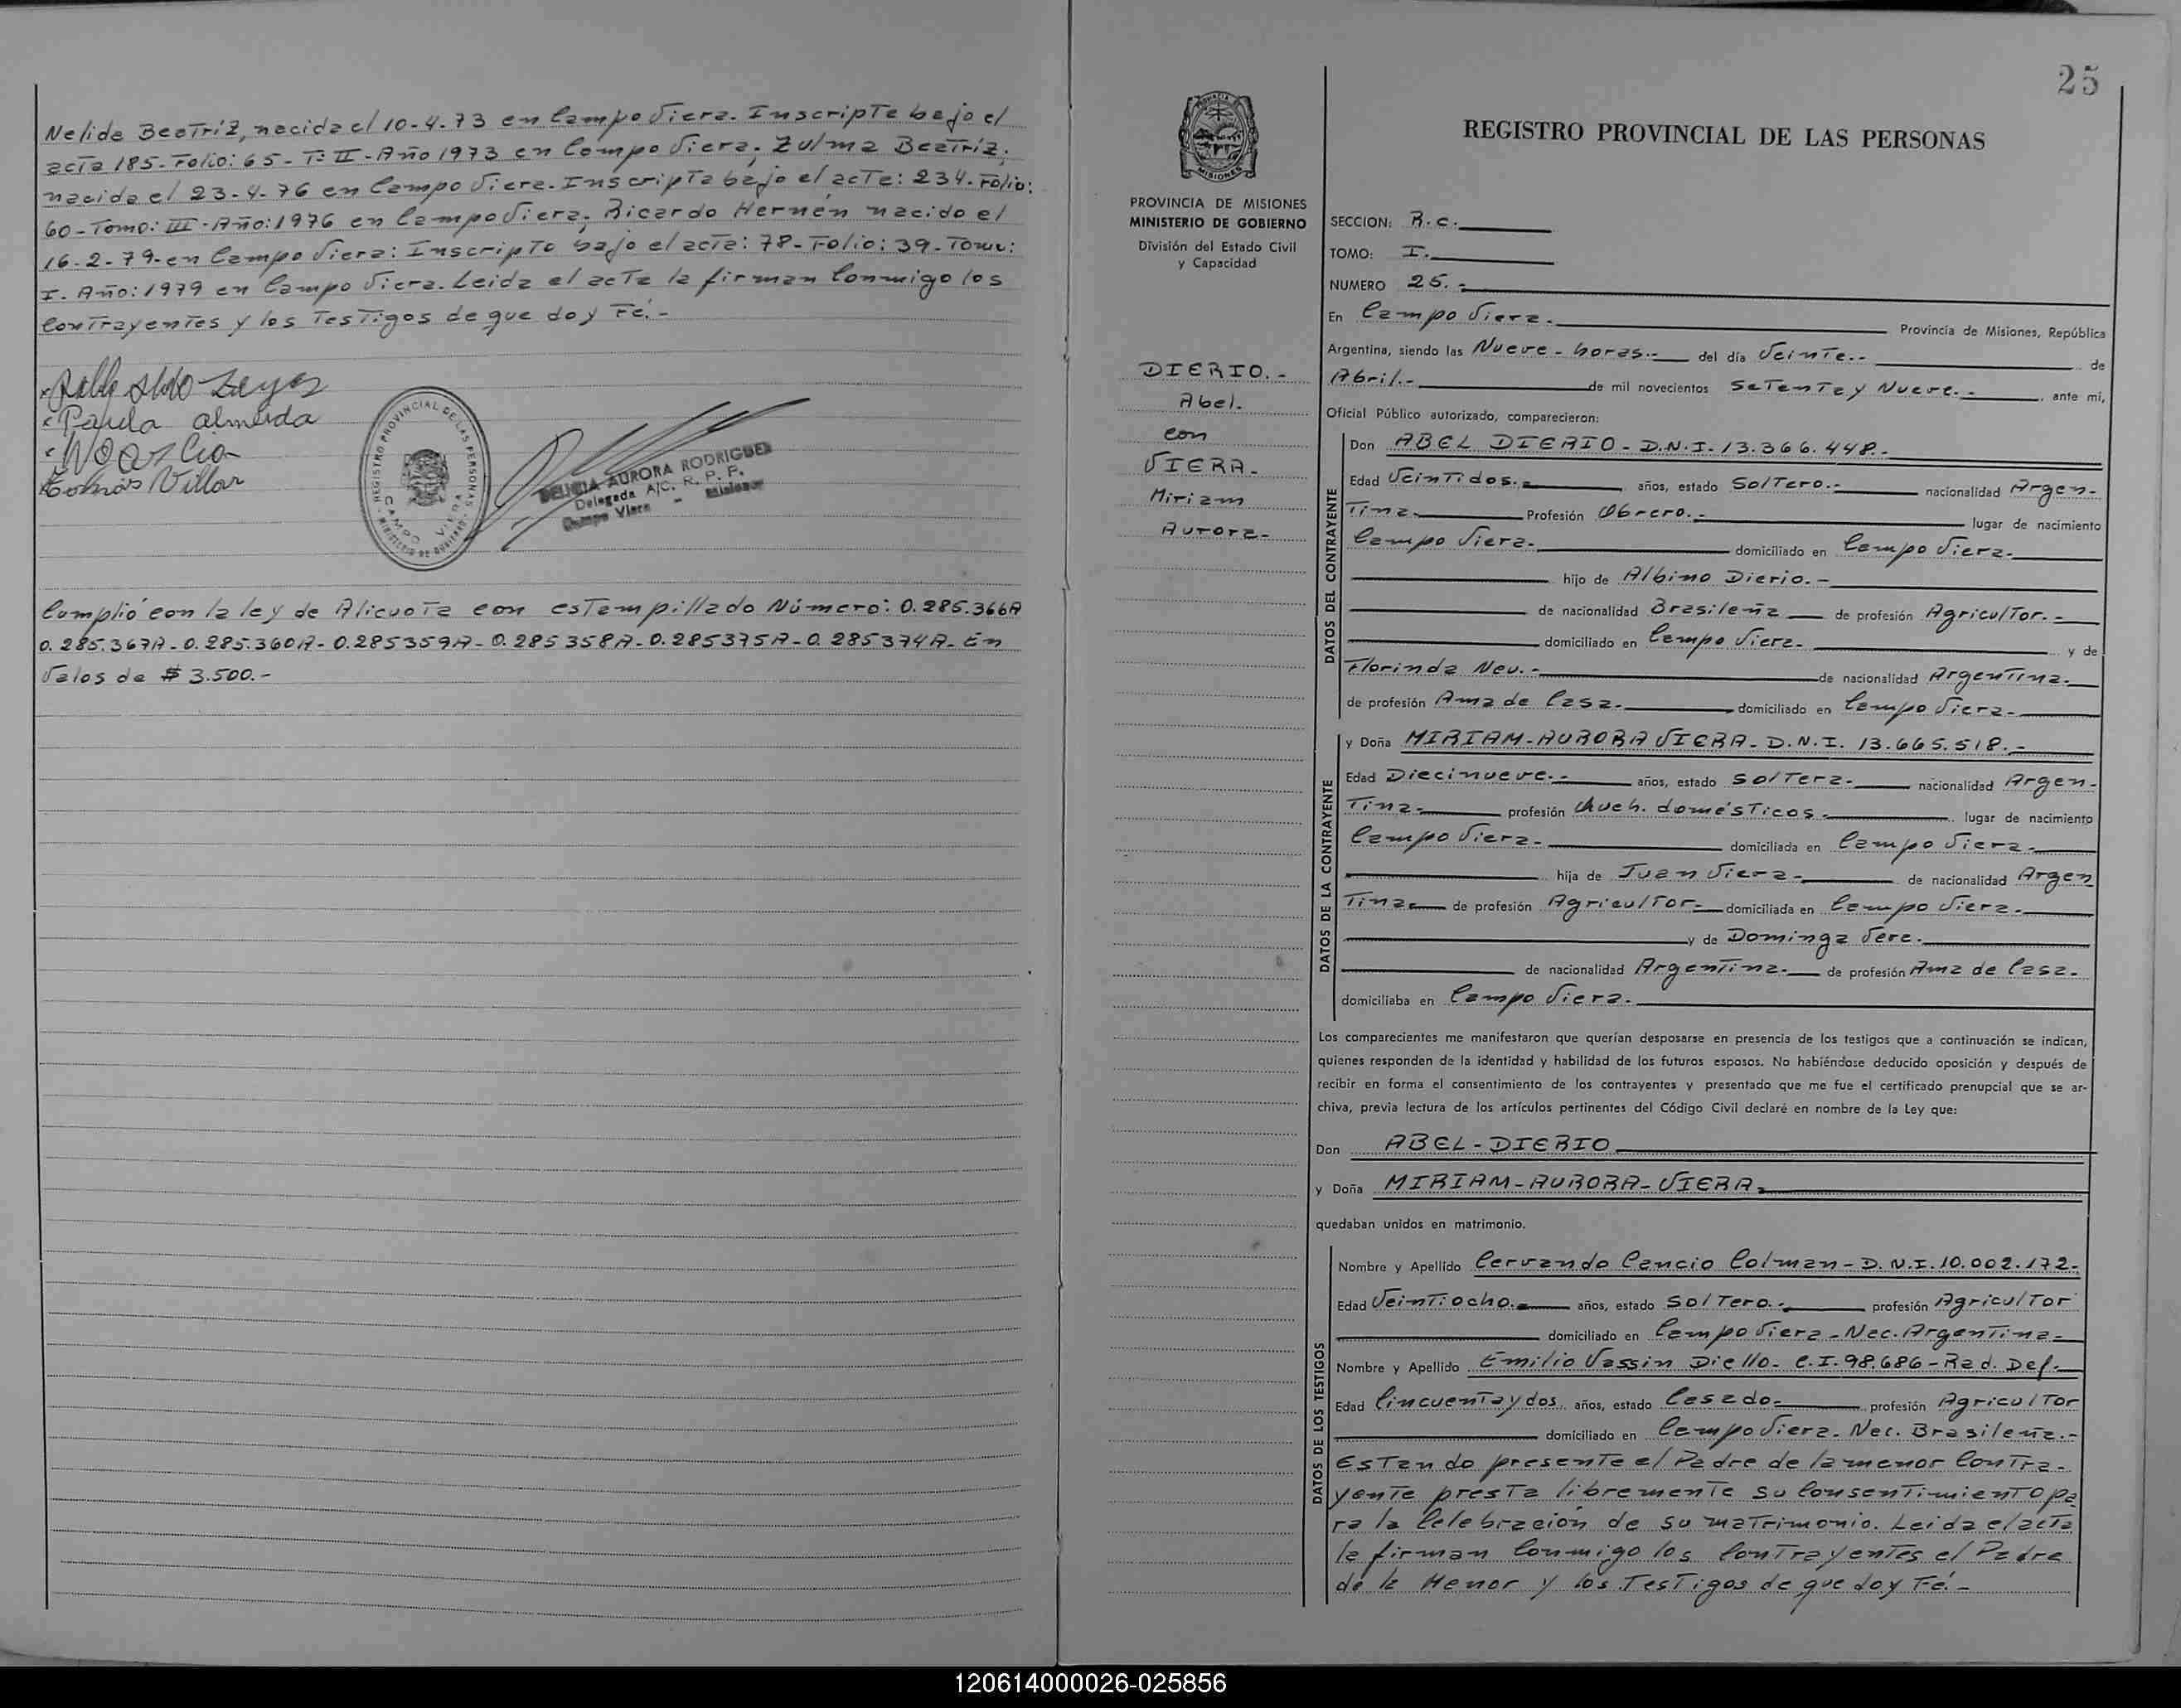 Nelida Beatríz, nacida el 10-4-73 en Campo Viera. Inscripta bajo el
acta 185-Folio: 65- T: II-Año 1973 en Campo Viera; Zulma Beatríz;
nacida el 23-4-76 en Campo Viera. Inscripta bajo el acta: 234. Folio:
60-Tomo: III-Año: 1976 en Campo Viera; Ricardo Hernán nacido el
16-2-79-en Campo Viera: Inscripto bajo el acta: 78-Folio: 39-Tomo:
I. Año: 1979 en Campo Viera. Leida el acta la firman Conmigo los
Contrayentes y los Testigos de que doy Fé.-
Paula almeida
Tomás Villar
REGISTRO PROVINCIAL DE LAS PERSONAS
CAMPO VIERA
DELICIA AURORA RODRIGUEZ
Delegada A/C. R. P. P.
Campo Viera - Misiones
Cumplió con la ley de Alicuota con estampillado Número: 0.285.366A
0.285.367A-0.285.360A-0.285359A-0.285358A-0.285375A-0.285374A-En
Valos de $ 3.500.-
25
PROVINCIA DE MISIONES
MINISTERIO DE GOBIERNO
División del Estado Civil
y Capacidad
DIERIO.-
Abel.
con
VIERA-
Miriam
Aurora-
REGISTRO PROVINCIAL DE LAS PERSONAS
SECCION: R.C.
TOMO: I.
NUMERO 25.-
En Campo Viera.- Provincia de Misiones, República
Argentina, siendo las Nueve-horas.- del día Veinte.- de
Abril.- de mil novecientos Setenta y Nueve.- ante mi,
Oficial Público autorizado, comparecieron:
DATOS DEL CONTRAYENTE
Don ABEL DIERIO-D.N.I-13.366.448.-
Edad Veintidos.- años, estado Soltero.- nacionalidad Argen-
tina- Profesión Obrero.- lugar de nacimiento
Campo Viera- domiciliado en Campo Viera-
hijo de Albino Dierio.-
de nacionalidad Brasileña de profesión Agricultor.-
domiciliado en Campo Viera- y de
Florinda Neu.- de nacionalidad Argentina-
de profesión Ama de Casa- domiciliado en Campo Viera-
DATOS DE LA CONTRAYENTE
y Doña MIRIAM-AURORA VIERA-D.N.I. 13.665.518.-
Edad Diecinueve.- años, estado Soltera- nacionalidad Argen-
tina- profesión Queh. domésticos- lugar de nacimiento
Campo Viera- domiciliada en Campo Viera-
hija de Juan Viera- de nacionalidad Argen
tina- de profesión Agricultor- domiciliada en Campo Viera-
y de Dominga Vere.-
de nacionalidad Argentina- de profesión Ama de Casa-
domiciliaba en Campo Viera-
Los comparecientes me manifestaron que querían desposarse en presencia de los testigos que a continuación se indican,
quienes responden de la identidad y habilidad de los futuros esposos. No habiéndose deducido oposición y después de
recibir en forma el consentimiento de los contrayentes y presentado que me fue el certificado prenupcial que se ar-
chiva, previa lectura de los artículos pertinentes del Código Civil declaré en nombre de la Ley que:
Don ABEL-DIERIO
y Doña MIRIAM-AURORA-VIERA-
quedaban unidos en matrimonio.
DATOS DE LOS TESTIGOS
Nombre y Apellido Cervando Cancio Colman-D.N.I.10.002.172-
Edad Veintiocho.- años, estado Soltero.- profesión Agricultor
domiciliado en Campo Viera-Nac. Argentina-
Nombre y Apellido Emilio Vassin Diello-C.I-98.686-Rad. Def.
Edad Cincuentaydos años, estado Casado- profesión Agricultor
domiciliado en Campo Viera-Nac. Brasileña.-
Estando presente el Padre de la menor Contra-
yente presta libremente su Consentimiento pa
ra la Celebración de su matrimonio. Leida el acta
la firman Conmigo los Contrayentes el Padre
de la Menor y los Testigos de que doy Fé.-
120614000026-025856